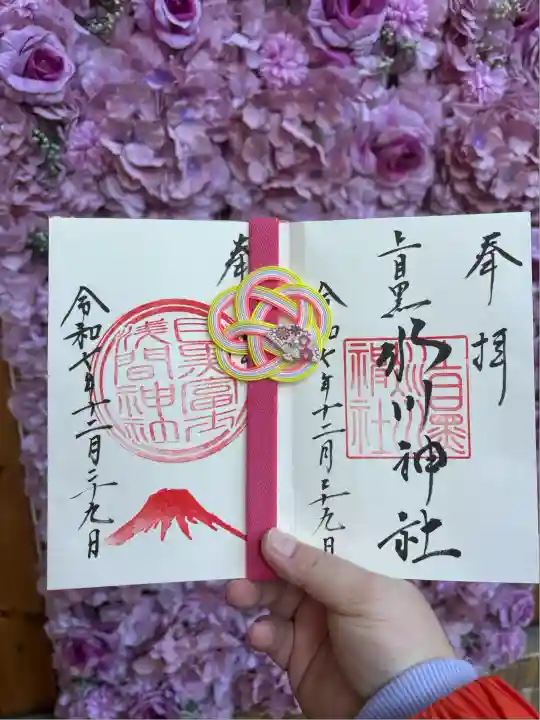 奉拝
上目黒氷川神社
上目黒氷川神社
令和七年十二月二十九日
奉
目黒富士浅間神社
令和七年十二月二十九日